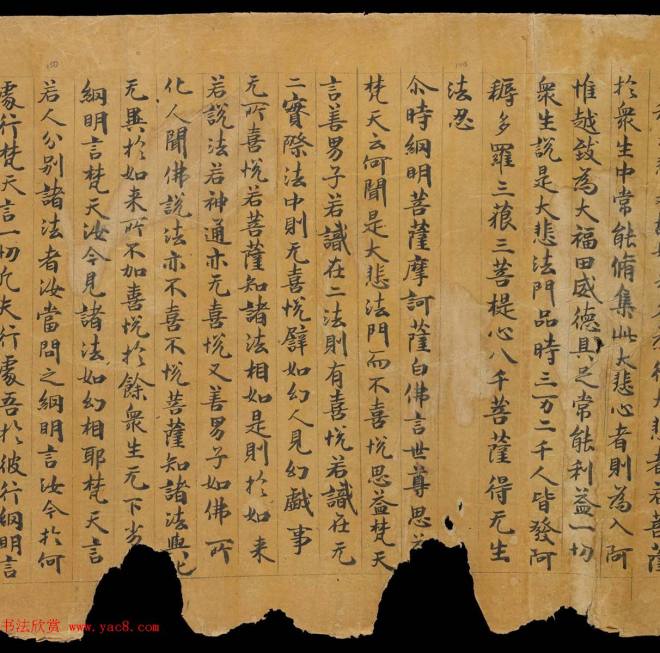 於眾生中常能脩集此大悲心者則為入阿
惟越致為大福田威德具足常能利益一切
眾生說是大悲法門品時三万二千人皆發阿
耨多羅三藐三菩提心八千菩薩得无生
法忍
尒時網明菩薩摩訶薩白佛言世尊思
梵天云何聞是大悲法門而不喜悅思益梵天
言善男子若識在二法則有喜悅若識在无
二實際法中則无喜悅譬如幻人見幻戲事
无所喜悅若菩薩知諸法相如是則於如来
若說法若神通亦无喜悅又善男子如佛所
化人聞佛說法亦不喜不悅菩薩知諸法與化
无異於如来所不加喜悅於餘眾生无下劣
網明言梵天汝今見諸法如幻相耶梵天言
若人分別諸法者汝當問之網明言汝今於何
處行梵天言一切凡夫行處吾於彼行網明言
书法欣赏 www.yac8.com